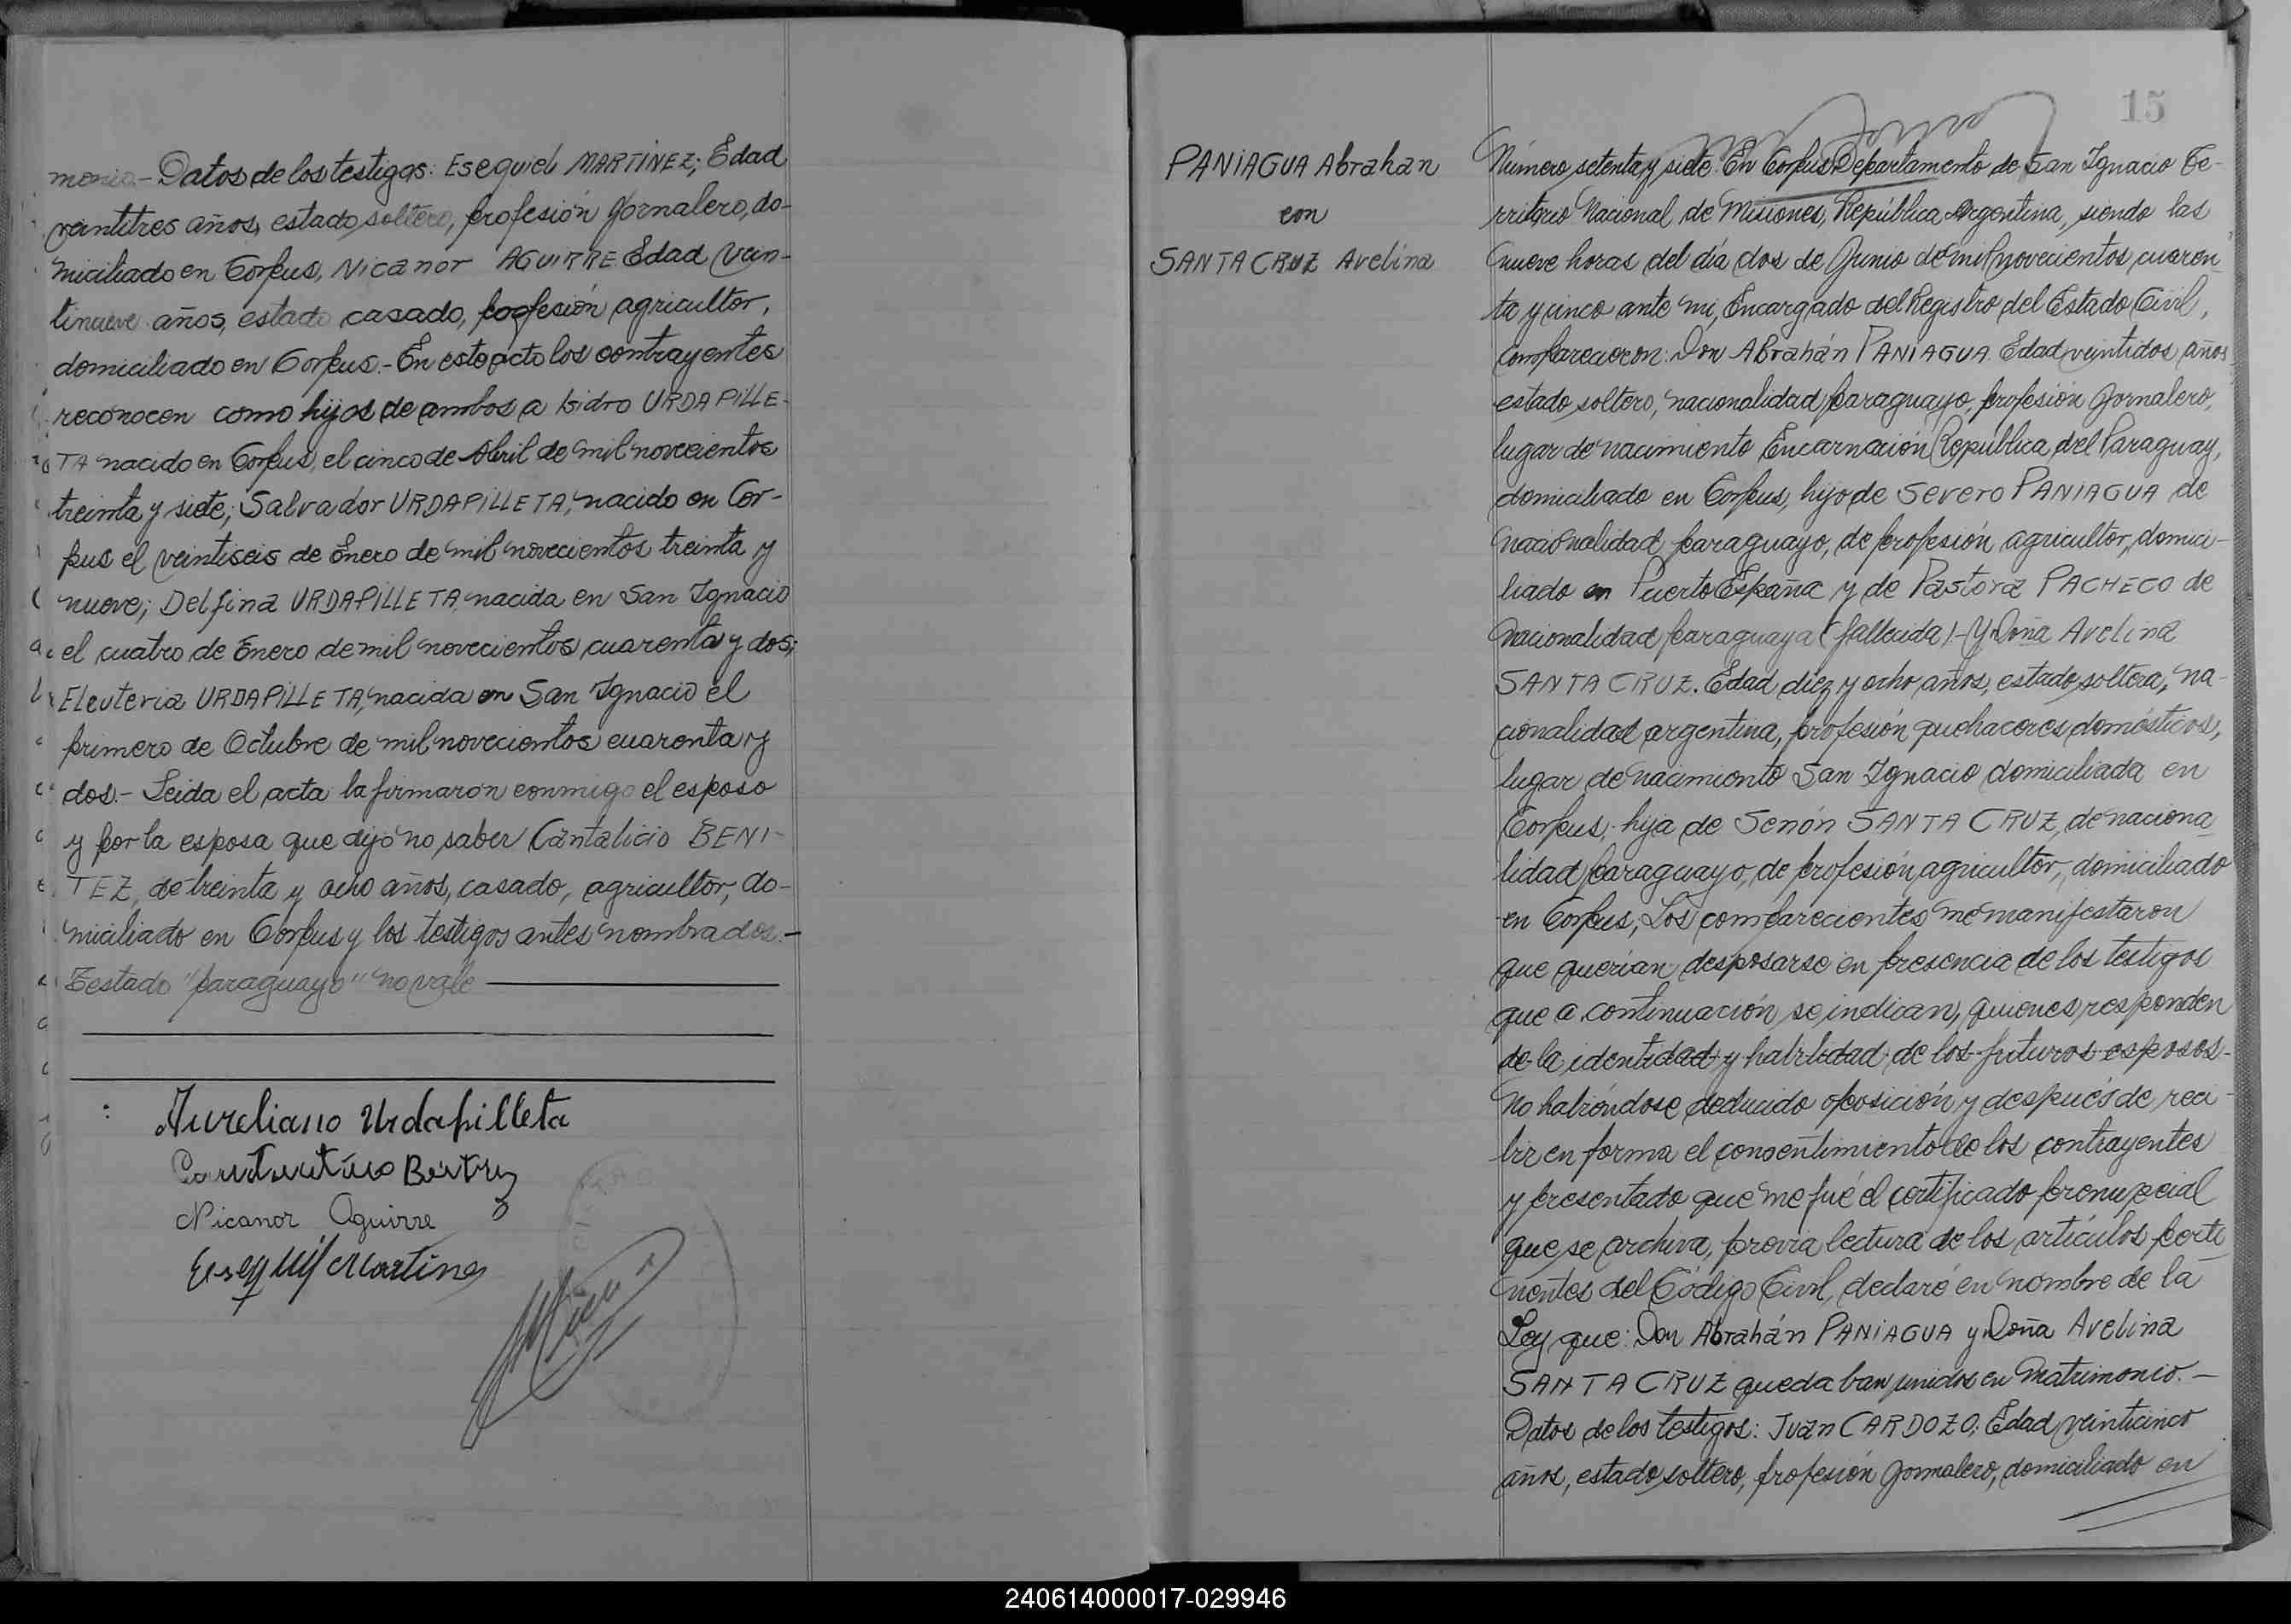 monio.- Datos de los testigos: Esequiel MARTINEZ; Edad
veintitres años, estado soltero, profesión jornalero, do-
miciliado en Corpus, Nicanor AGUIRRE Edad vein-
tinueve años, estado casado, profesión agricultor,
domiciliado en Corpus.- En este acto los contrayentes
reconocen como hijos de ambos a Isidro URDAPILLE-
TA nacido en Corpus, el cinco de Abril de mil novecientos
treinta y siete; Salvador URDAPILLETA, nacido en Cor-
pus el veintiseis de Enero de mil novecientos treinta y
nueve; Delfina URDAPILLETA, nacida en San Ignacio
el cuatro de Enero de mil novecientos cuarenta y dos;
Eleuteria URDAPILLETA, nacida en San Ignacio el
primero de Octubre de mil novecientos cuarenta y
dos.- Leida el acta la firmaron conmigo el esposo
y por la esposa que dijo no saber Cantalicio BENI-
TEZ, de treinta y ocho años, casado, agricultor, do-
miciliado en Corpus y los testigos antes nombrados.-
Testado "paraguayo" no vale
Aureliano Urdapilleta
Nicanor Aguirre
Martinez
15
PANIAGUA Abrahan
con
SANTA CRUZ Avelina
Número setenta y siete. En Corpus Departamento de San Ignacio Te-
rritorio Nacional de Misiones, República Argentina, siendo las
nueve horas del día dos de Junio de mil novecientos cuaren
ta y cinco ante mi, Encargado del Registro del Estado Civil,
comparecieron: Don Abrahán PANIAGUA. Edad veintidos años
estado soltero, nacionalidad paraguayo, profesión jornalero,
lugar de nacimiento Encarnación República del Paraguay,
domiciliado en Corpus, hijo de Severo PANIAGUA de
nacionalidad paraguayo, de profesión agricultor, domici-
liado en Puerto España y de Pastora PACHECO de
nacionalidad paraguaya (fallecida).- Y Doña Avelina
SANTA CRUZ. Edad diez y ocho años, estado soltera, na-
cionalidad argentina, profesión quehaceres domésticos,
lugar de nacimiento San Ignacio domiciliada en
Corpus, hija de Senón SANTA CRUZ, de naciona
lidad paraguayo, de profesión agricultor, domiciliado
en Corpus; Los comparecientes me manifestaron
que querían desposarse en presencia de los testigos
que a continuación se indican, quienes responden
de la identidad y habilidad de los futuros esposos-
No habiéndose deducido oposición y después de reci-
bir en forma el consentimiento de los contrayentes
y presentado que me fué el certificado prenupcial
que se archiva, previa lectura de los artículos perti
nentes del Código Civil, declaré en nombre de la
Ley que: Don Abrahán PANIAGUA y Doña Avelina
SANTA CRUZ quedaban unidos en Matrimonio.-
Datos de los testigos: Juan CARDOZO; Edad veinticinco
años, estado soltero, profesión jornalero, domiciliado en
240614000017-029946